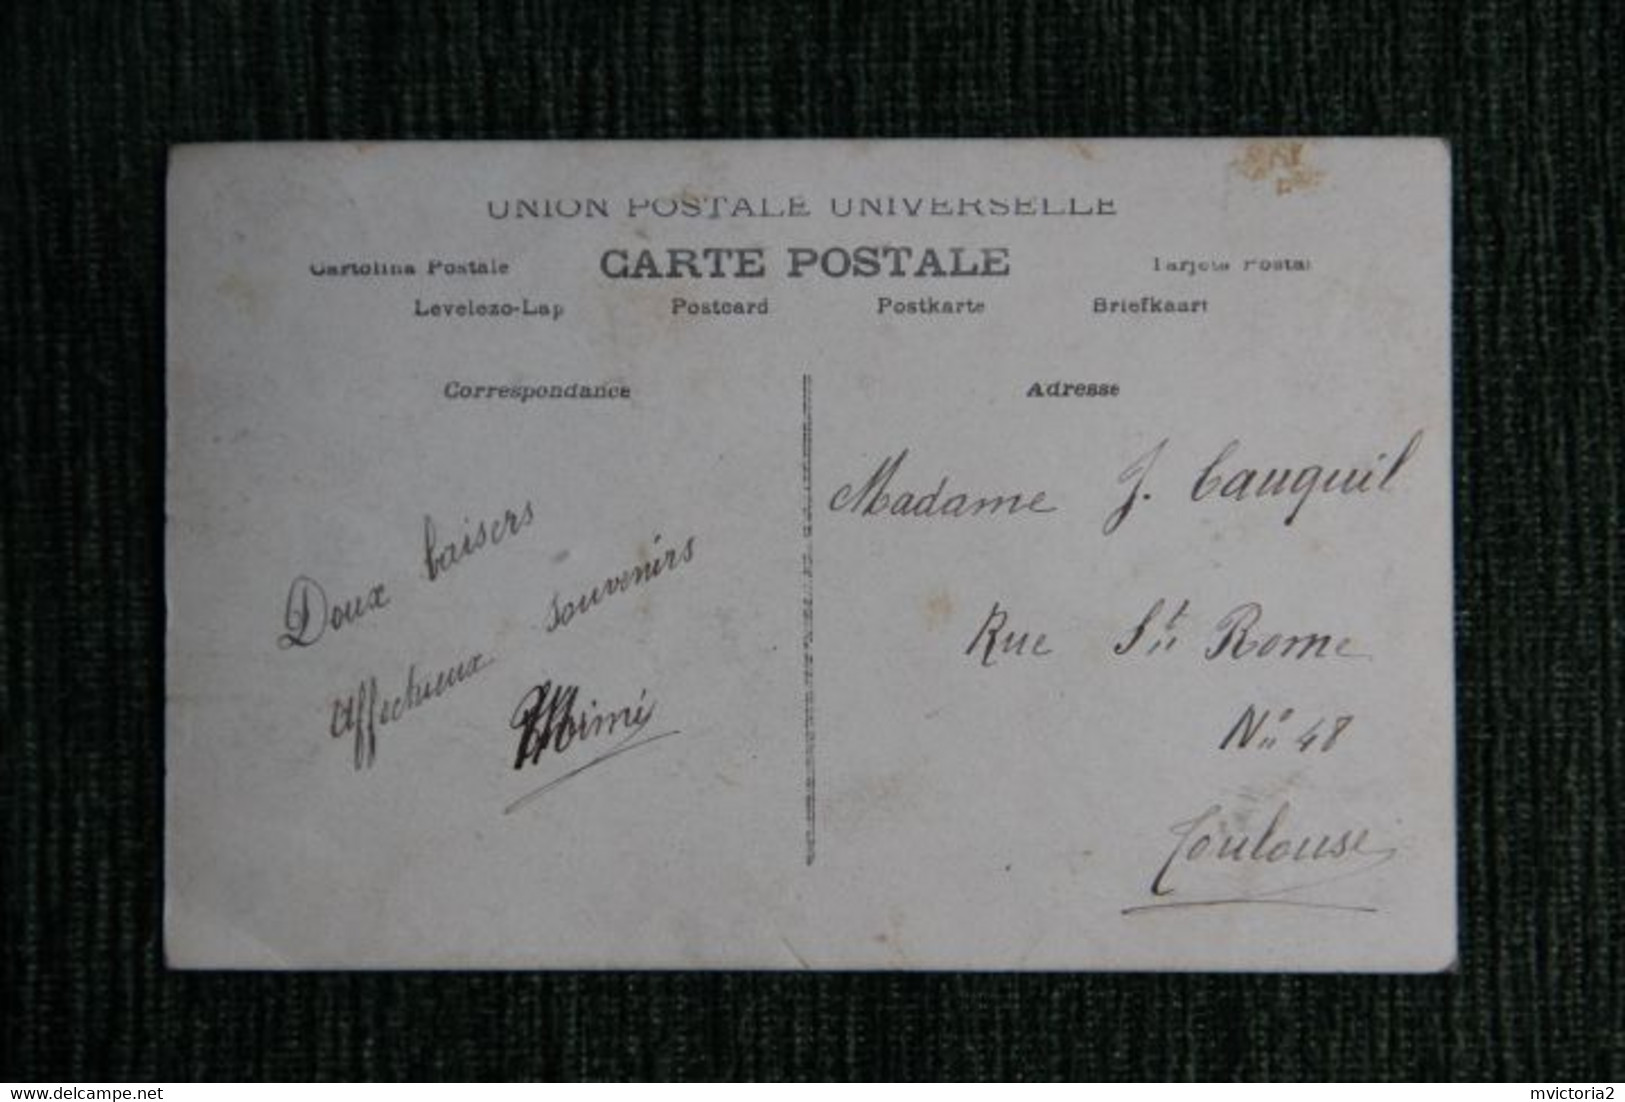 UNION POSTALE UNIVERSELLE
Cartolina Postale CARTE POSTALE Tarjeta Postal
Levelezo-Lap Postcard Postkarte Briefkaart
Correspondance
Doux baisers
Affectueux souvenirs
Mimi
Adresse
Madame J. Cauquil
Rue St Rome
No 48
Toulouse
delcampe.net
mvictoria2